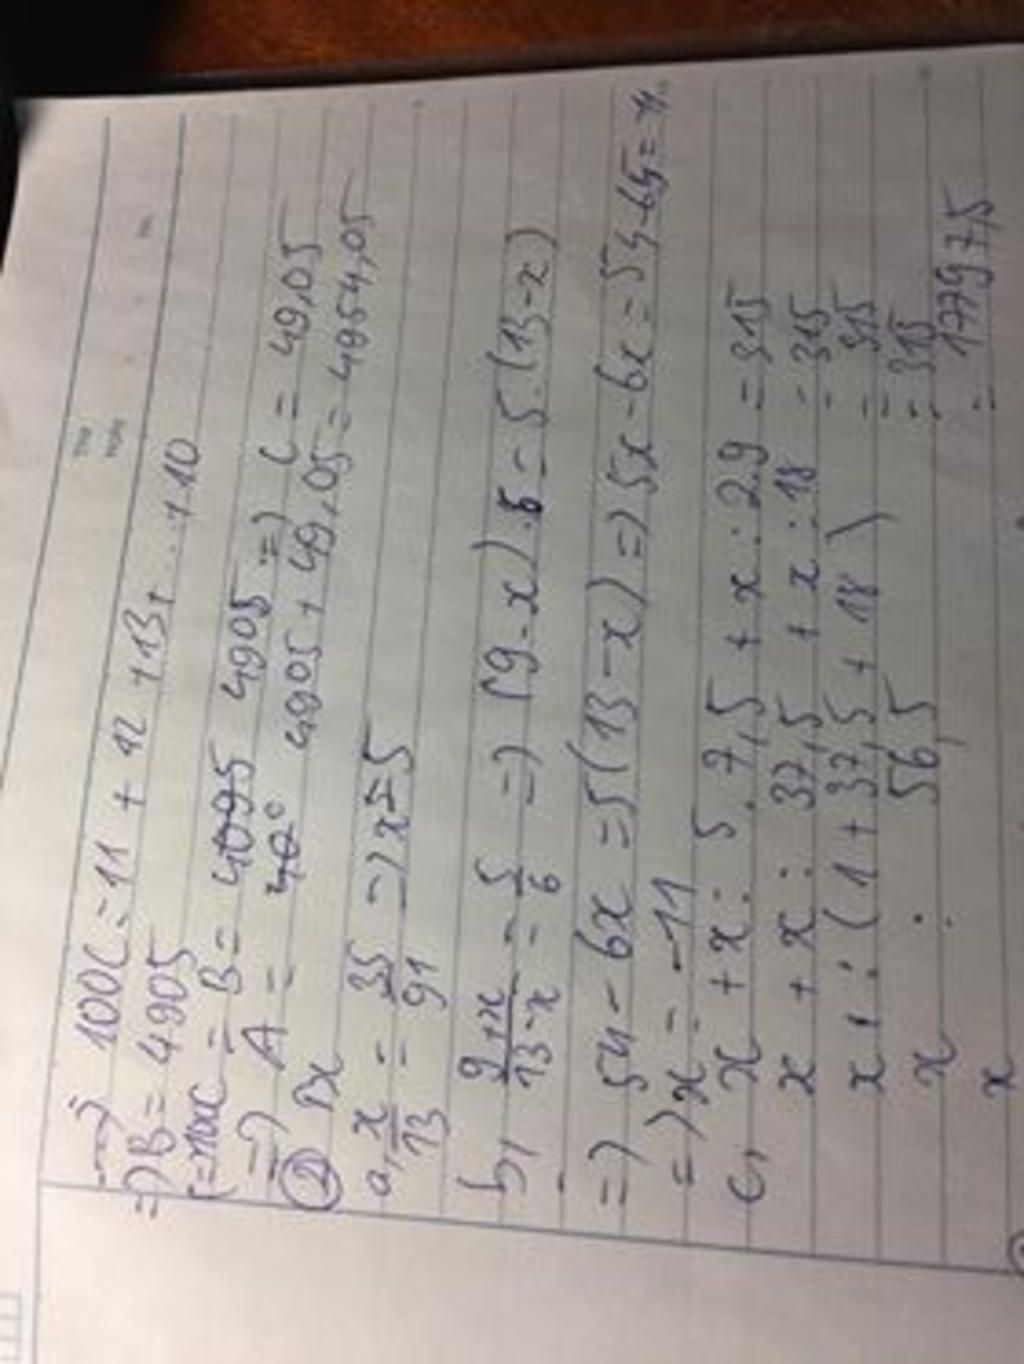 => 100C = 11 + 12 + 13 + ... + 10
=> B = 4905
B = 4905 => C = 49,05
=> A = 4905 + 49,05 = 4954,05
② Tìm x
a, x/13 = 35/91 => x = 5
b, 9+x/13-x = 5/6 => (9-x).6 = 5.(13-x)
=> 54 - 6x = 5(13-x) => 5x - 6x = 54 - 65 = -11
=> x = -11
c, x + x : 5 . 7,5 + x : 2.9 = 315
x + x : 37,5 + x : 18 = 315
x : (1 + 37,5 + 18) = 315
x : 56,5 = 315
x = 17797,5